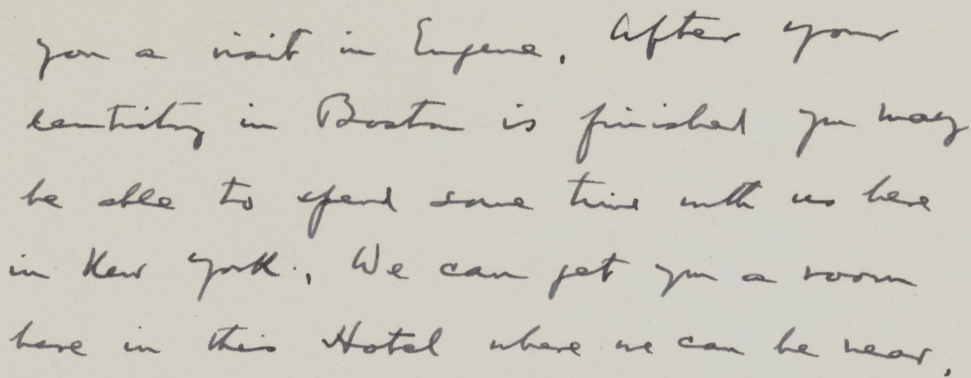 you a visit in Eugene. After your
dentistry in Boston is finished you may
be able to spend some time with us here
in New York. We can get you a room
here in this Hotel where we can be near.